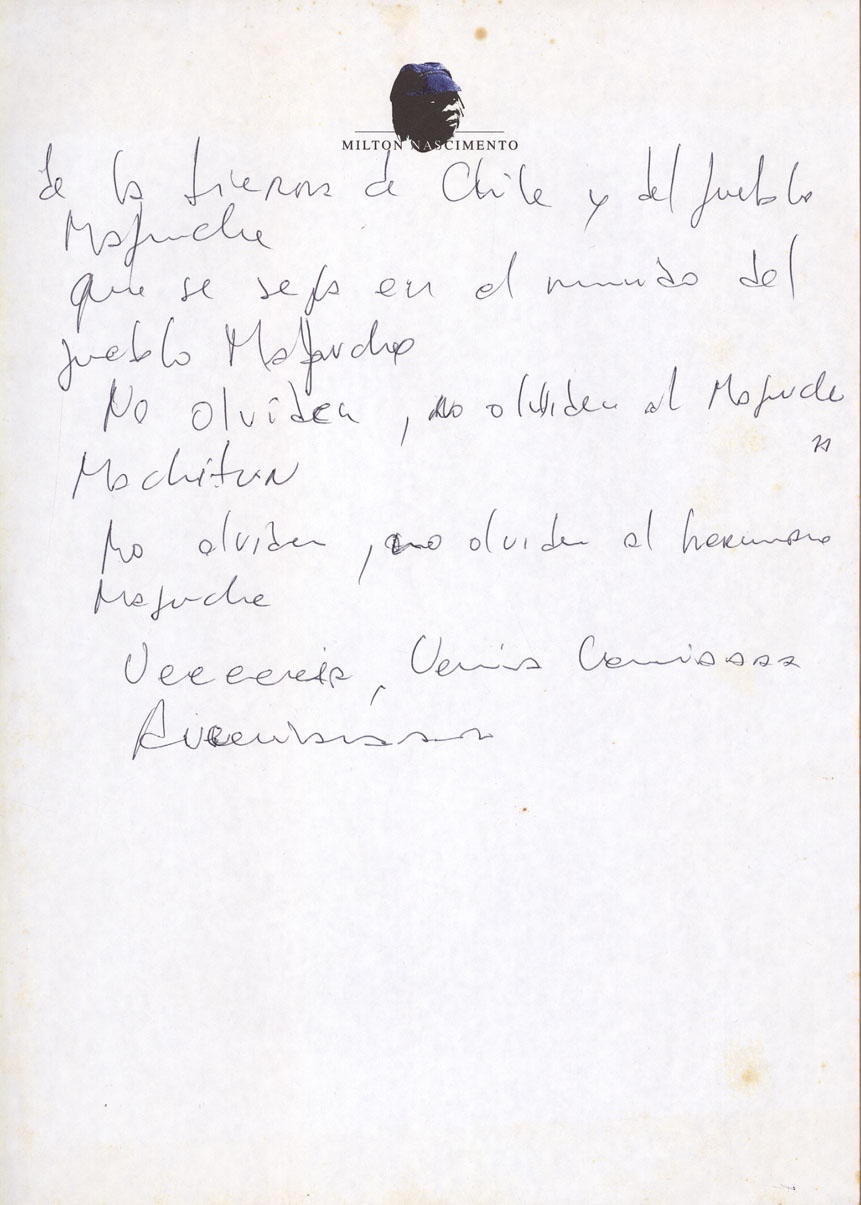 MILTON NASCIMENTO
de la tierra de Chile y del pueblo
Mapuche
que se sepa en el mundo del
pueblo Mapuche
No olviden, no olviden al Mapuche
Machitun
No olviden, no olviden al hermano
Mapuche